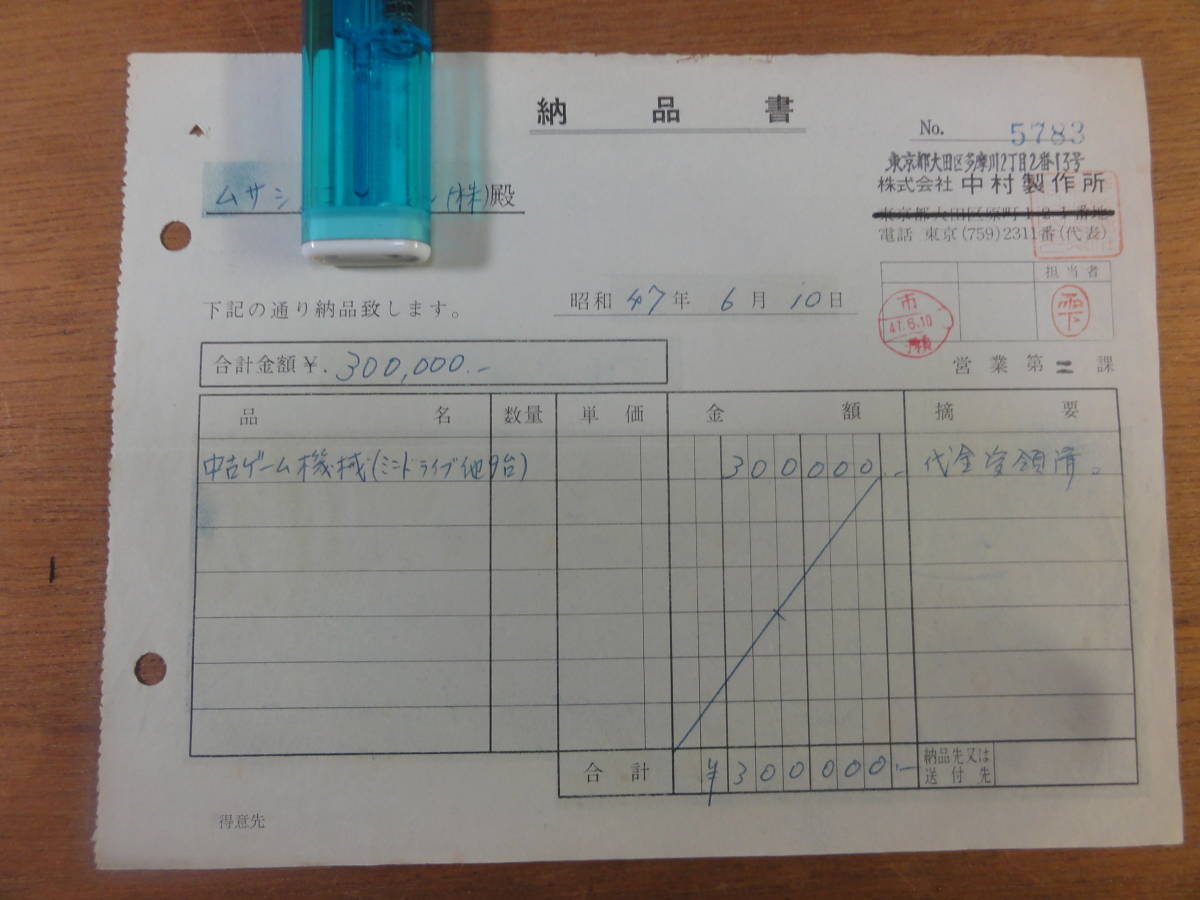 納品書
No. 5783
東京都大田区多摩川2丁目2番13号
株式会社 中村製作所
東京都大田区原町121番地
電話 東京(759)2311番(代表)
ムサシ ン(株)殿
下記の通り納品致します。
昭和47年6月10日
担当者
市
47.6.10
合計金額¥. 300,000.-
営業第二課
品名 数量 単価 金額 摘要
中古ゲーム機械(ミニドライブ他9台) 300000.- 代金受領済。
合計 ¥300000.- 納品先又は
送付先
得意先